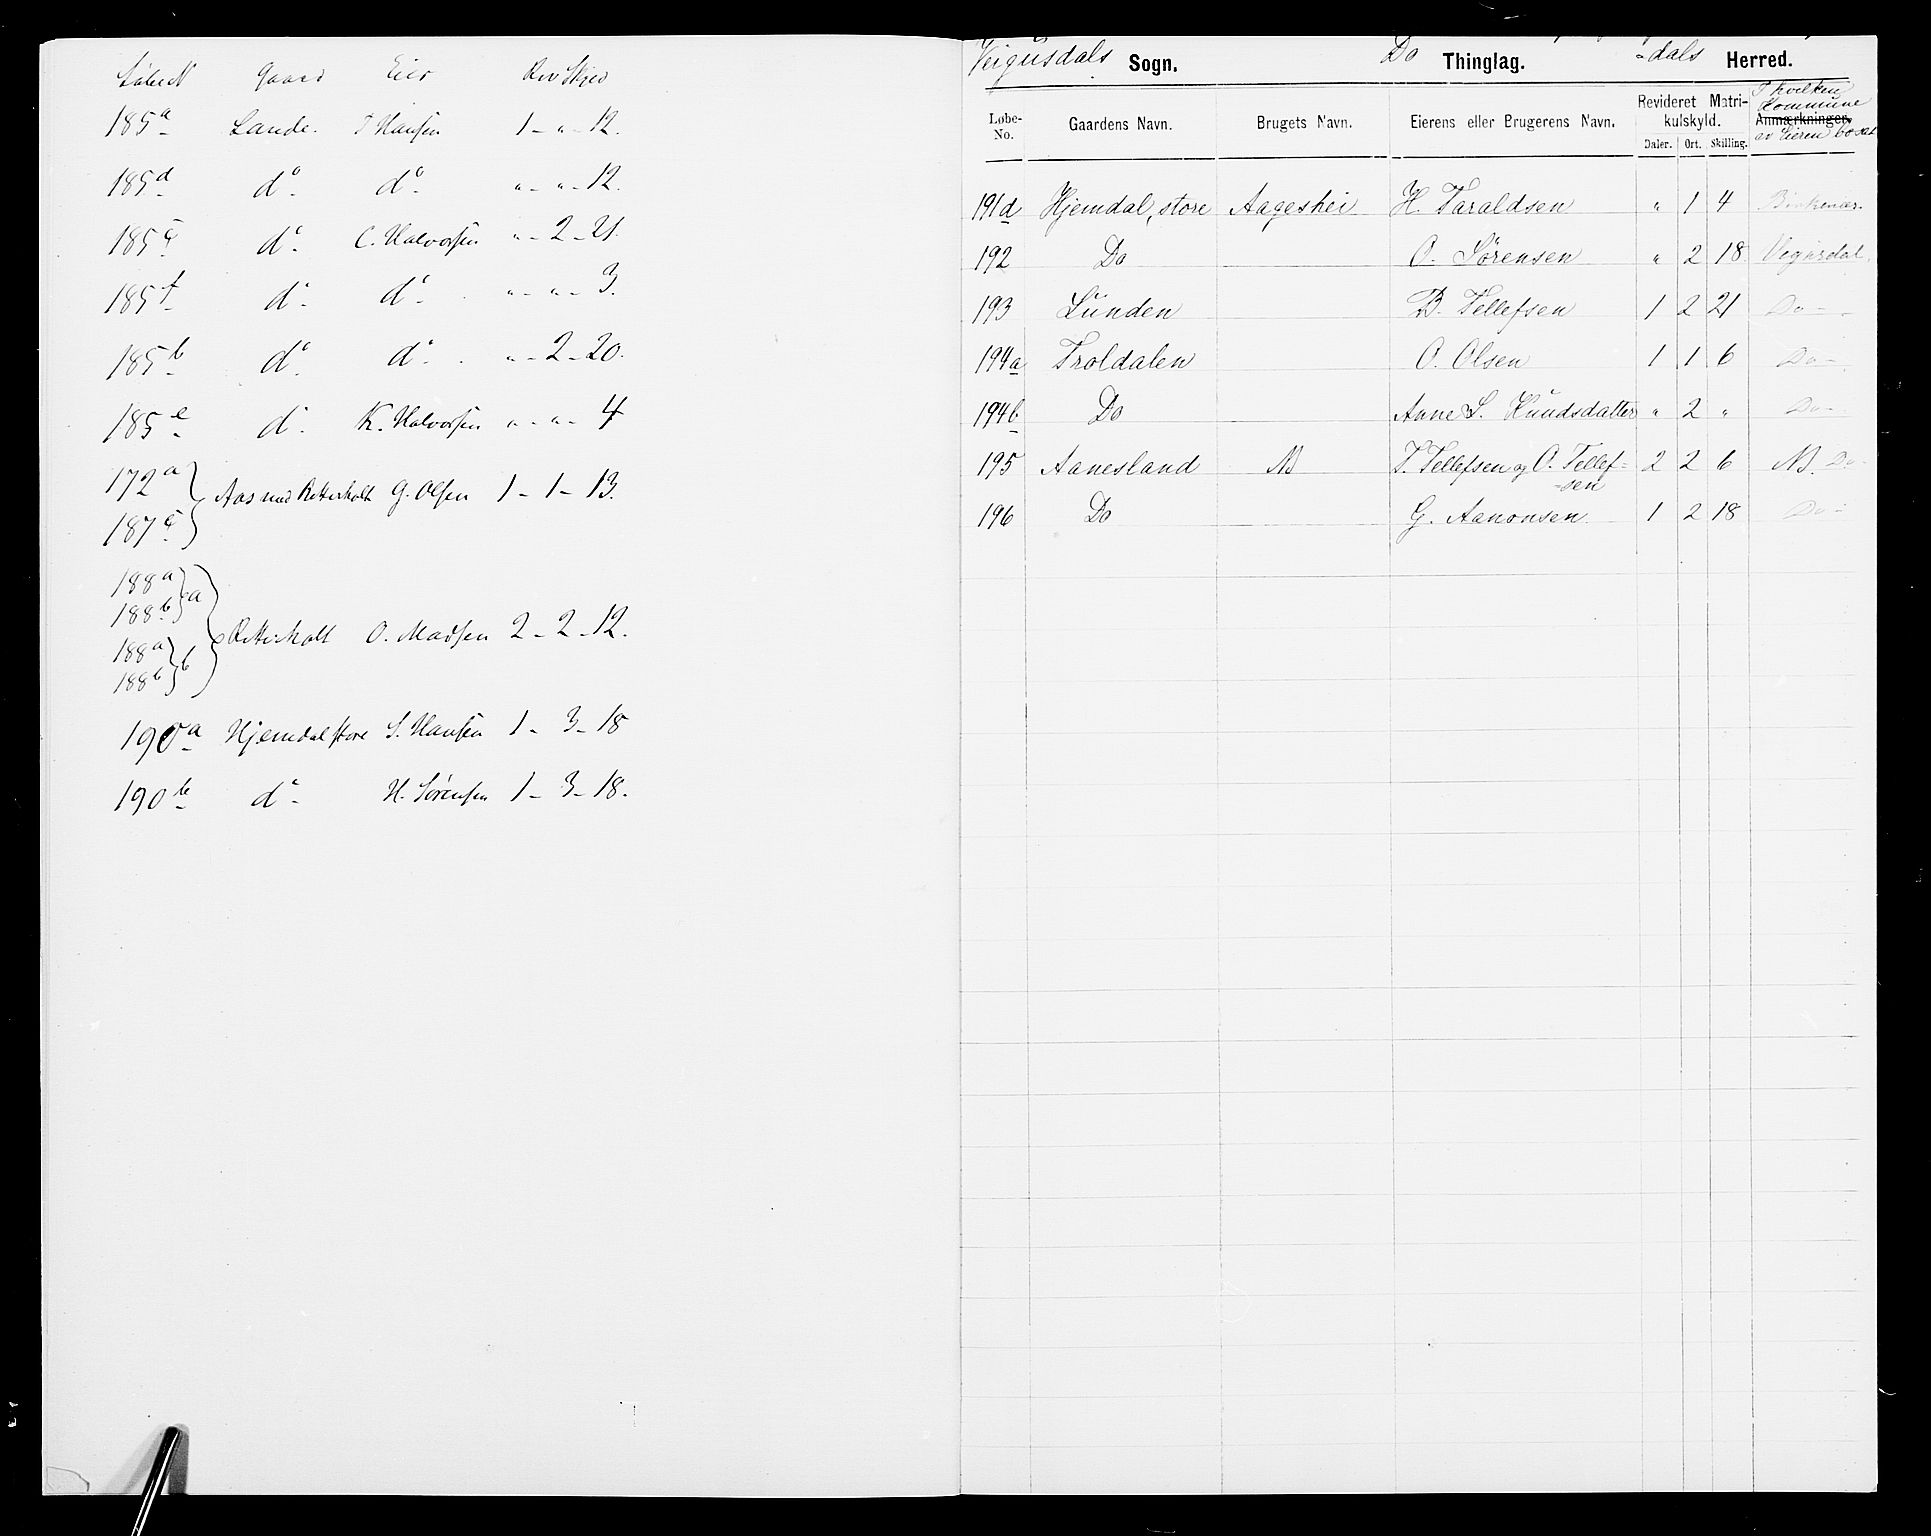 LøbeN Gaard Eier Rev Skyld
185a Lande. T Hansen 1 - " - 12.
185d do. do. " - " - 12.
185c do. C. Halvorsen " - 2 - 21.
185f do. do. " - " - 3.
185b do. do. " - 2 - 20.
185e do. K. Halvorsen " - " - 4
172a
187c } Aas med Retterholt G. Olsen 1 - 1 - 13.
188a
188b } a
188a
188b } b } Retterholt O. Madsen 2 - 2 - 12.
190a Hjemdal store S. Hansen 1 - 3 - 18
190b do. H. Sørensen 1 - 3 - 18.
Veigusdals Sogn. Do Thinglag. -dals Herred.
Løbe-No. Gaardens Navn. Brugets Navn. Eierens eller Brugerens Navn. Revideret Matrikulskyld. Daler. Ort. Skilling. Anmærkninger. I hvilken Kommune er Eieren bosat
191d Hjemdal, store Aageshei H. Taraldsen " 1 4 Birkenæs.
192 Do O. Sørensen " 2 18 Vegusdal.
193 Lunden B. Tellefsen 1 2 21 Do -
194a Troldalen O. Olsen 1 1 6 Do -
194b Do Anne S. Knudsdatter " 2 " Do -
195 Aanesland NB T. Tellefsen og O. Tellef-
-sen 2 2 6 NB. Do -
196 Do G. Aanonsen. 1 2 18 Do -